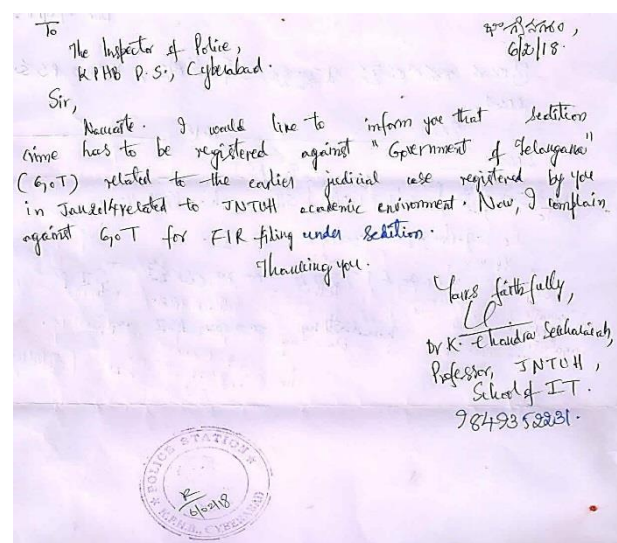 To
The Inspector of Police,
KPHB P.S., Cyberabad.
భాగ్యనగరం,
6/2/18.
Sir,
Namaste. I would like to inform you that sedition
crime has to be registered against "Government of Telangana"
(GoT) related to the earlier judicial case registered by you
in Jan2014 related to JNTUH academic environment. Now, I complain
against GoT for FIR filing under sedition.
Thanking you.
Yours faithfully,
Dr K. Chandra Sekharaiah,
Professor, JNTUH,
School of IT.
9849352231.
POLICE STATION
6/02/18
K.P.H.B., CYBERABAD